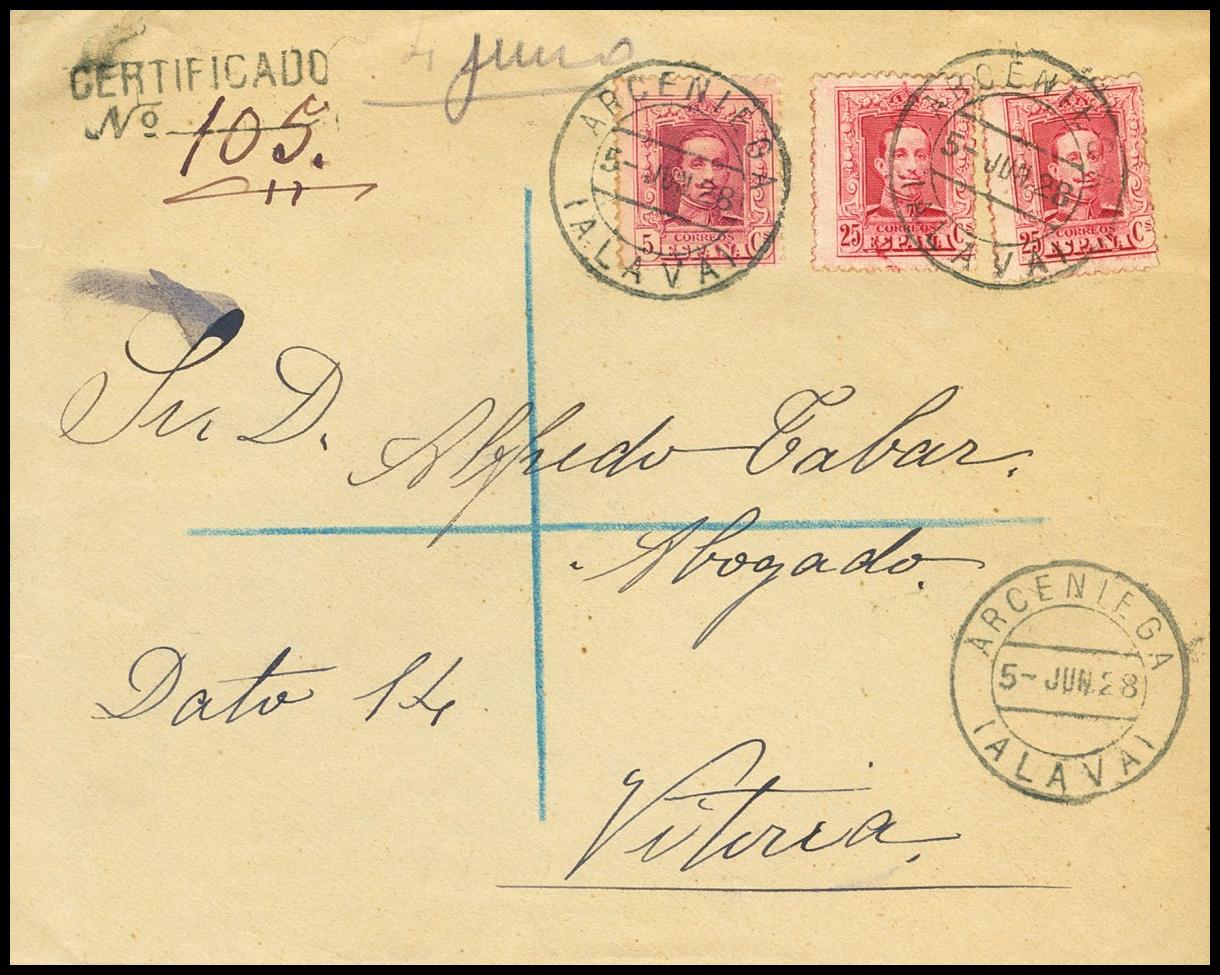 CERTIFICADO
Nº 105.
4 junio
ARCENIEGA
5- JUN.28
(ALAVA)
5 Cs
CORREOS
ESPAÑA
ARCENIEGA
5- JUN.28
(ALAVA)
25 Cs
CORREOS
ESPAÑA
25 Cs
CORREOS
ESPAÑA
Sr. D. Alfredo Tabar.
Abogado.
Dato 14
Vitoria.
ARCENIEGA
5- JUN.28
(ALAVA)